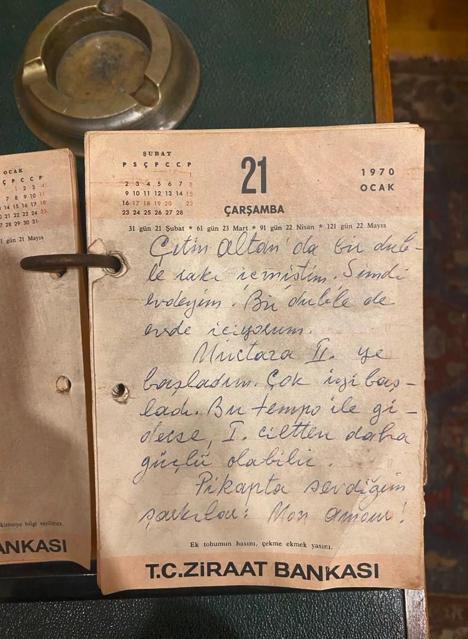 OCAK
ı gün 21 Mayıs
ANKASI
ŞUBAT
P S Ç P C C P
1
2 3 4 5 6 7 8
9 10 11 12 13 14 15
16 17 18 19 20 21 22
23 24 25 26 27 28
21
ÇARŞAMBA
1970
OCAK
31 gün 21 Şubat * 61 gün 23 Mart * 91 gün 22 Nisan * 121 gün 22 Mayıs
Çetin Altan'da bir dub-
le rakı içmiştim. Şimdi
evdeyim. Bir duble de
evde içiyorum.
Murtaza II. ye
başladım. Çok iyi baş-
ladı. Bu tempo ile gi-
derse, I. ciltten daha
güçlü olabilir.
Pikapta sevdiğim
şarkılar: Mon amour!
Ek tohumun hasını, çekme ekmek yasını.
T.C.ZİRAAT BANKASI